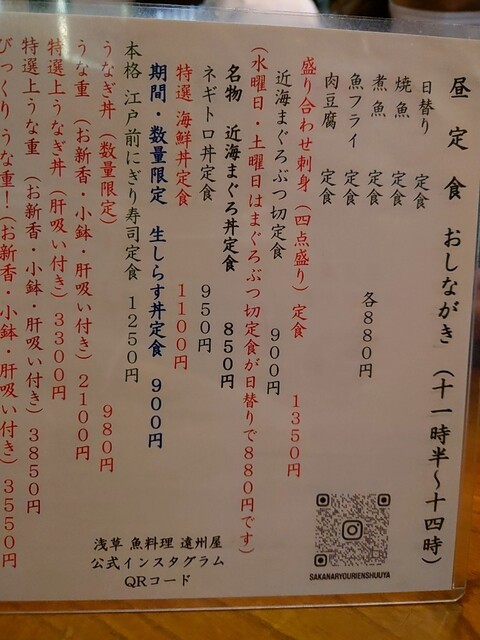 昼定食 おしながき (十一時半～十四時)
日替り 定食
焼魚 定食
煮魚 定食
魚フライ 定食
肉豆腐 定食
各880円
盛り合わせ刺身 (四点盛り) 定食 1350円
近海まぐろぶつ切定食 900円
(水曜日・土曜日はまぐろぶつ切定食が日替りで880円です)
名物 近海まぐろ丼定食 850円
ネギトロ丼定食 950円
特選 海鮮丼定食 1100円
期間・数量限定 生しらす丼定食 900円
本格 江戸前にぎり寿司定食 1250円
うなぎ丼 (数量限定) 980円
うな重 (お新香・小鉢・肝吸い付き) 2100円
特選上うなぎ丼 (肝吸い付き) 3300円
特選上うな重 (お新香・小鉢・肝吸い付き) 3850円
びっくりうな重!(お新香・小鉢・肝吸い付き) 3550円
SAKANARYOURIENSHUUYA
浅草 魚料理 遠州屋
公式インスタグラム
QRコード